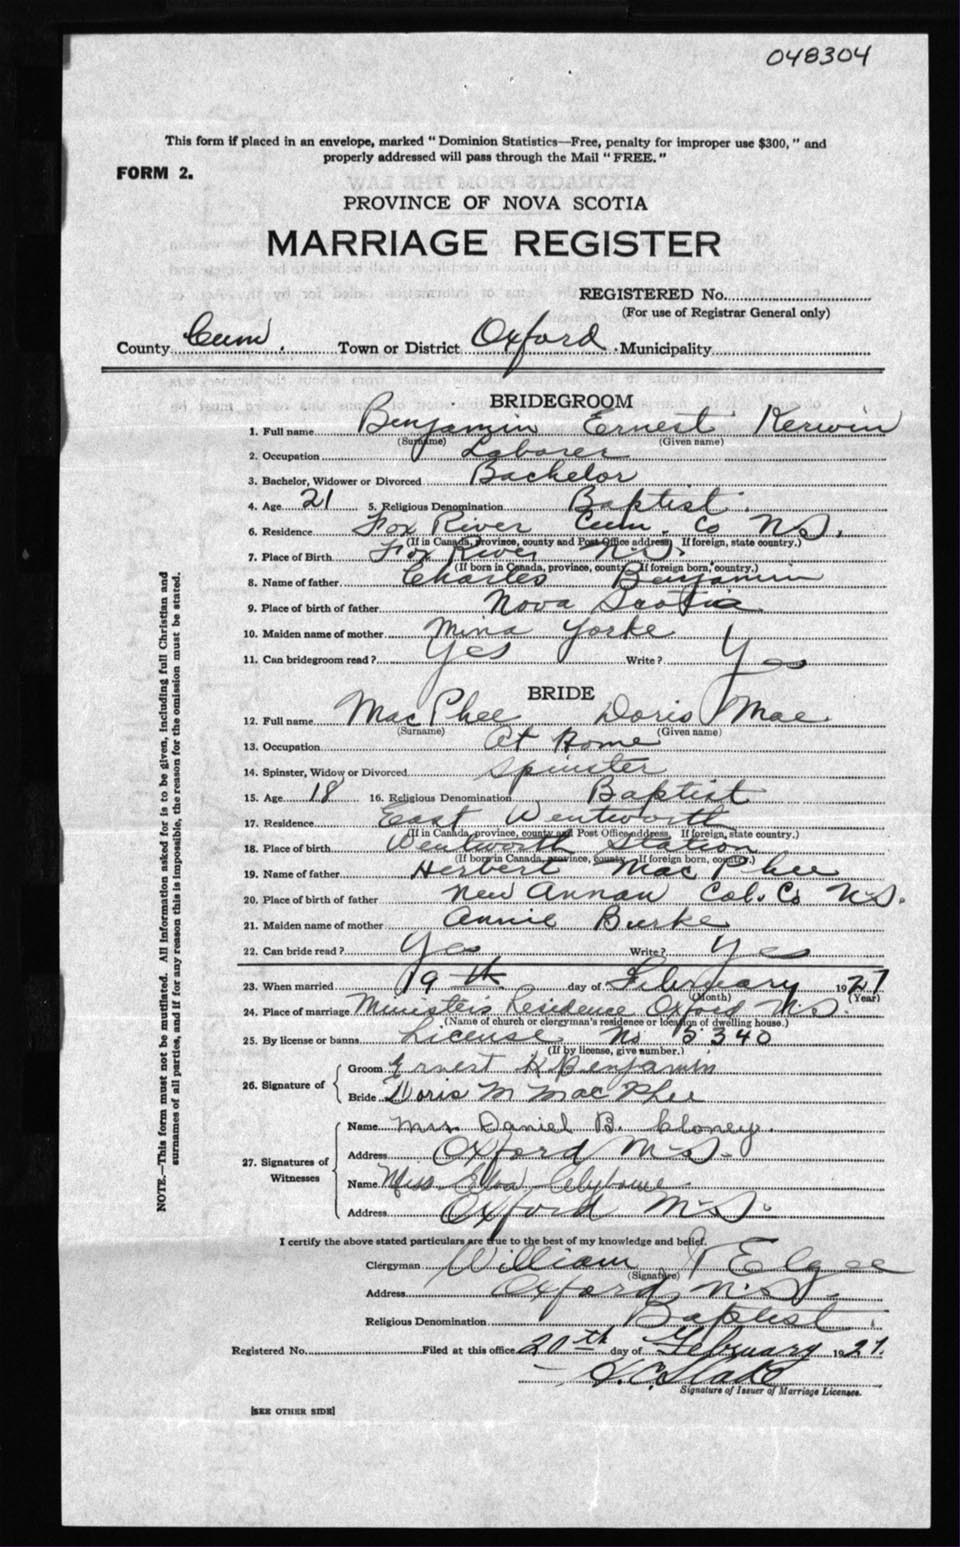 048304
This form if placed in an envelope, marked "Dominion Statistics—Free, penalty for improper use $300," and
properly addressed will pass through the Mail "FREE."
FORM 2.
PROVINCE OF NOVA SCOTIA
MARRIAGE REGISTER
REGISTERED No.
(For use of Registrar General only)
County Cum. Town or District Oxford Municipality
BRIDEGROOM
1. Full name Benjamin Ernest Kerwin
(Surname) (Given name)
2. Occupation Laborer
3. Bachelor, Widower or Divorced Bachelor
4. Age 21 5. Religious Denomination Baptist.
6. Residence Fox River Cum. Co N.S.
(If in Canada, province, county and Post Office address. If foreign, state country.)
7. Place of Birth Fox River N.S.
(If born in Canada, province, county. If foreign born, country.)
8. Name of father Charles Benjamin
9. Place of birth of father Nova Scotia
10. Maiden name of mother Mina Yorke
11. Can bridegroom read? Yes Write? Yes
BRIDE
12. Full name MacPhee Doris Mae
(Surname) (Given name)
13. Occupation At Home
14. Spinster, Widow or Divorced Spinster
15. Age 18 16. Religious Denomination Baptist
17. Residence East Wentworth
(If in Canada, province, county and Post Office address. If foreign, state country.)
18. Place of birth Wentworth Station
(If born in Canada, province, county. If foreign born, country.)
19. Name of father Herbert MacPhee
20. Place of birth of father New Annan Col. Co N.S.
21. Maiden name of mother Annie Burke
22. Can bride read? Yes Write? Yes
23. When married 19th day of February 1927
(Month) (Year)
24. Place of marriage Minister's Residence Oxford N.S.
(Name of church or clergyman's residence or location of dwelling house.)
25. By license or banns License No 5340
(If by license, give number.)
26. Signature of
Groom Ernest K Benjamin
Bride Doris M MacPhee
27. Signatures of Witnesses
Name Mrs. Daniel B.
Address Oxford N.S.
Name Miss
Address Oxford N.S.
I certify the above stated particulars are true to the best of my knowledge and belief.
Clergyman William Elgee
(Signature)
Address Oxford, N.S.
Religious Denomination Baptist
Registered No. Filed at this office 20th day of February 1927.
Signature of Issuer of Marriage Licenses.
[SEE OTHER SIDE]
NOTE.—This form must not be mutilated. All information asked for is to be given, including full Christian and
surnames of all parties, and if for any reason this is impossible, the reason for the omission must be stated.